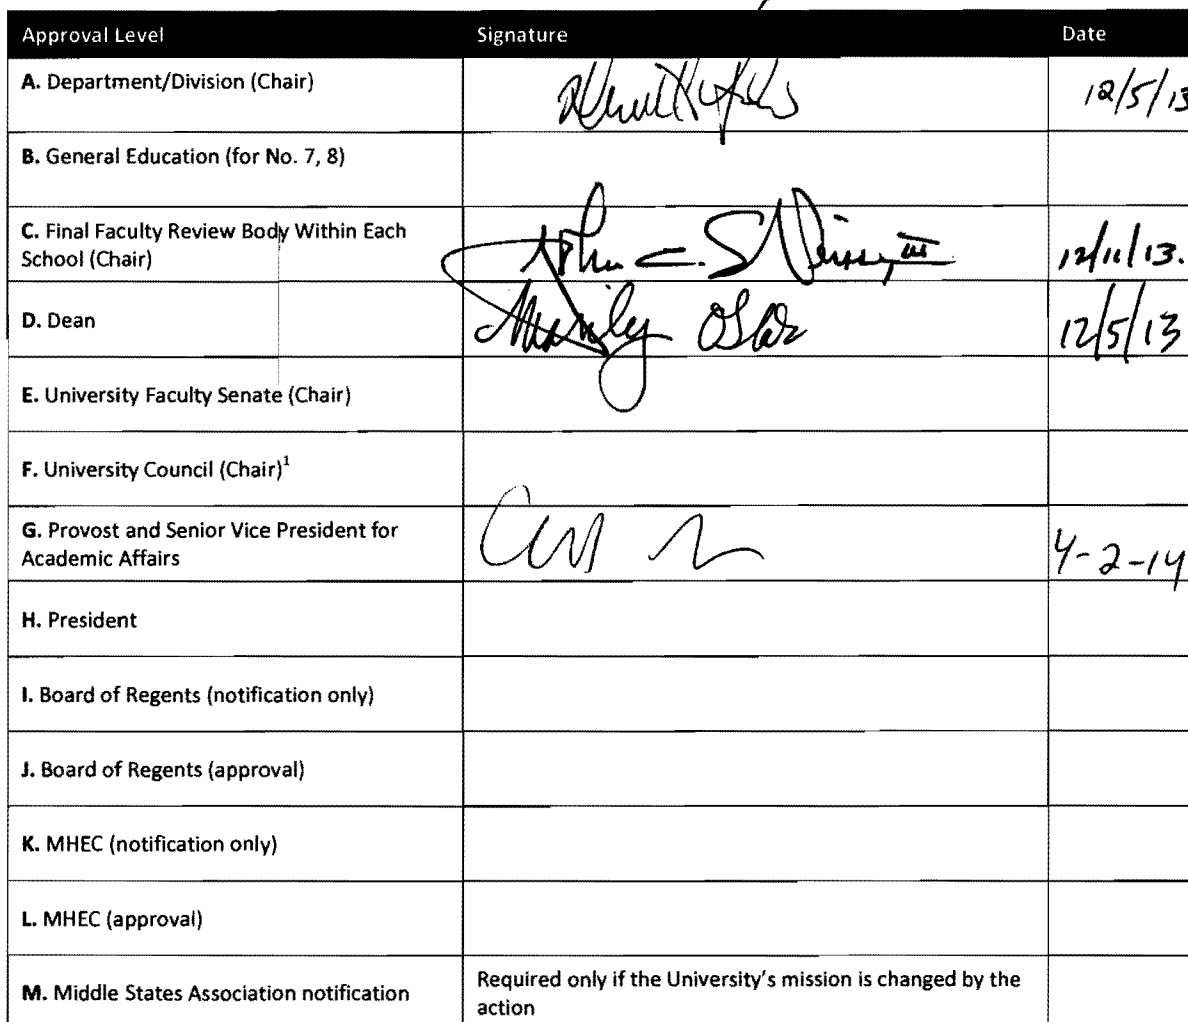 Approval Level Signature Date
A. Department/Division (Chair) 12/5/13
B. General Education (for No. 7, 8)
C. Final Faculty Review Body Within Each
School (Chair) 12/11/13.
D. Dean 12/5/13
E. University Faculty Senate (Chair)
F. University Council (Chair)¹
G. Provost and Senior Vice President for
Academic Affairs 4-2-14
H. President
I. Board of Regents (notification only)
J. Board of Regents (approval)
K. MHEC (notification only)
L. MHEC (approval)
M. Middle States Association notification Required only if the University's mission is changed by the
action